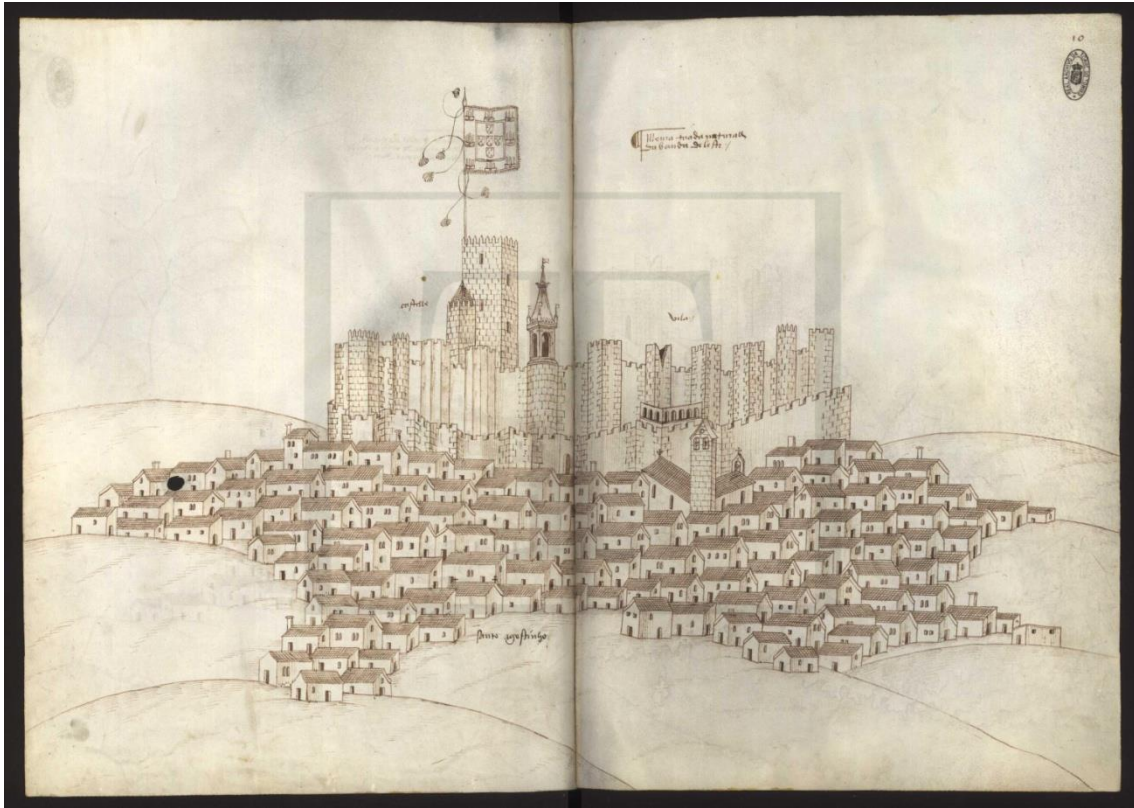 10
Moura tirada natural
da banda de leste /
castello
vila /
santo agostinho